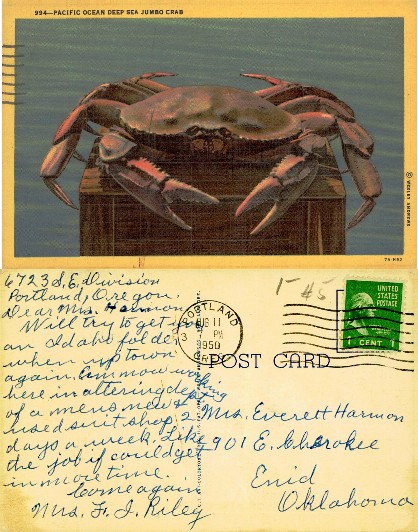 994—PACIFIC OCEAN DEEP SEA JUMBO CRAB
© WESLEY ANDREWS
6723 S.E. Division
Portland, Oregon.
Dear Mrs. Harmon
Will try to get you
an Idaho folder
when up town
again. Am now working
here in altering dept
of a mens new &
used suit shop. 2
days a week. Like
the job if could get
in more time.
Come again
Mrs. F. J. Riley
PORTLAND
AUG 11
3 PM
1950
ORE.
1- 45
UNITED
STATES
POSTAGE
1 CENT 1
POST CARD
Mrs. Everett Harmon
901 E. Cherokee
Enid
Oklahoma